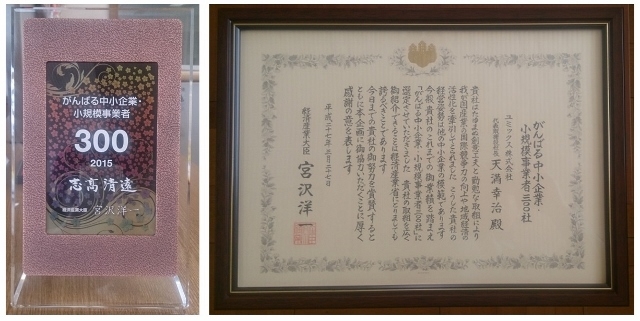 がんばる中小企業・
小規模事業者
300
2015
志高清遠
経済産業大臣 宮沢洋一
がんばる中小企業・
小規模事業者三〇〇社
ユミックス株式会社
代表取締役社長 天満幸治殿
貴社はたゆまぬ創意工夫と勤勉な取組により
我が国産業の国際競争力の向上や地域経済の
活性化を牽引ひとされました こうした貴社の
経営姿勢は他の中小企業の模範であります
今般貴社のこれまでの御業績を踏まえ
「がんばる中小企業・小規模事業者三〇〇社」に
選定させていただきました 貴社の取組を広く
御紹介できることは経済産業省にとりましても
誇るべきことであります
今日までの貴社の御努力を賞賛すると
ともに本企画に御協力いただくことに厚く
感謝の意を表します
平成二十七年三月二十七日
経済産業大臣 宮沢洋一